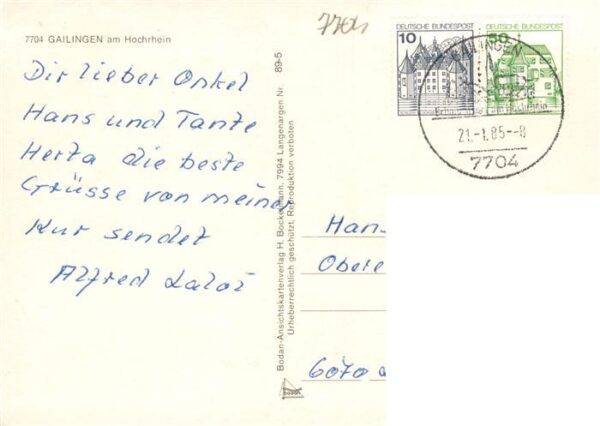 7704 GAILINGEN am Hochrhein
Dir lieber Onkel
Hans und Tante
Herta die beste
Grüsse von meiner
Kur sendet
Alfred
Bodan-Ansichtskartenverlag H. Bockelmann, 7994 Langenargen Nr. 89-5
Urheberrechtlich geschützt, Reproduktion verboten
BODAN
7704
DEUTSCHE BUNDESPOST
10
DEUTSCHE BUNDESPOST
50
GAILINGEN
21.-1.85--8
7704
Hans
Obere
6070